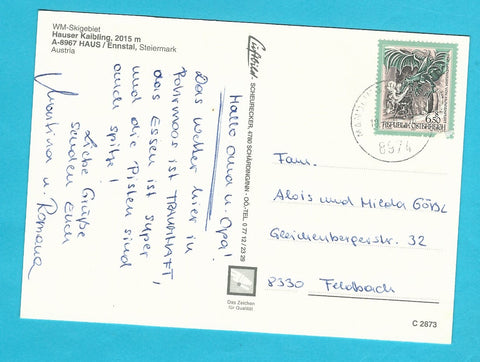 WM-Skigebiet
Hauser Kaibling, 2015 m
A-8967 HAUS / Ennstal, Steiermark
Austria
Hallo Oma u. Opa!
Das Wetter hier in
Rohrmoos ist TRAUMHAFT,
das Essen ist super
und die Pisten sind
auch spitze!
Liebe Grüße
senden Euch
Martina u. Romana
Luftbild
SCHEURECKER, 4780 SCHÄRDING/INN - OÖ.-TEL. 0 77 12 / 23 29
Das Zeichen
für Qualität
6.50
REPUBLIK ÖSTERREICH
8974
Fam.
Alois und Hilda Gößl
Gleichenbergerstr. 32
8330 Feldbach
C 2873